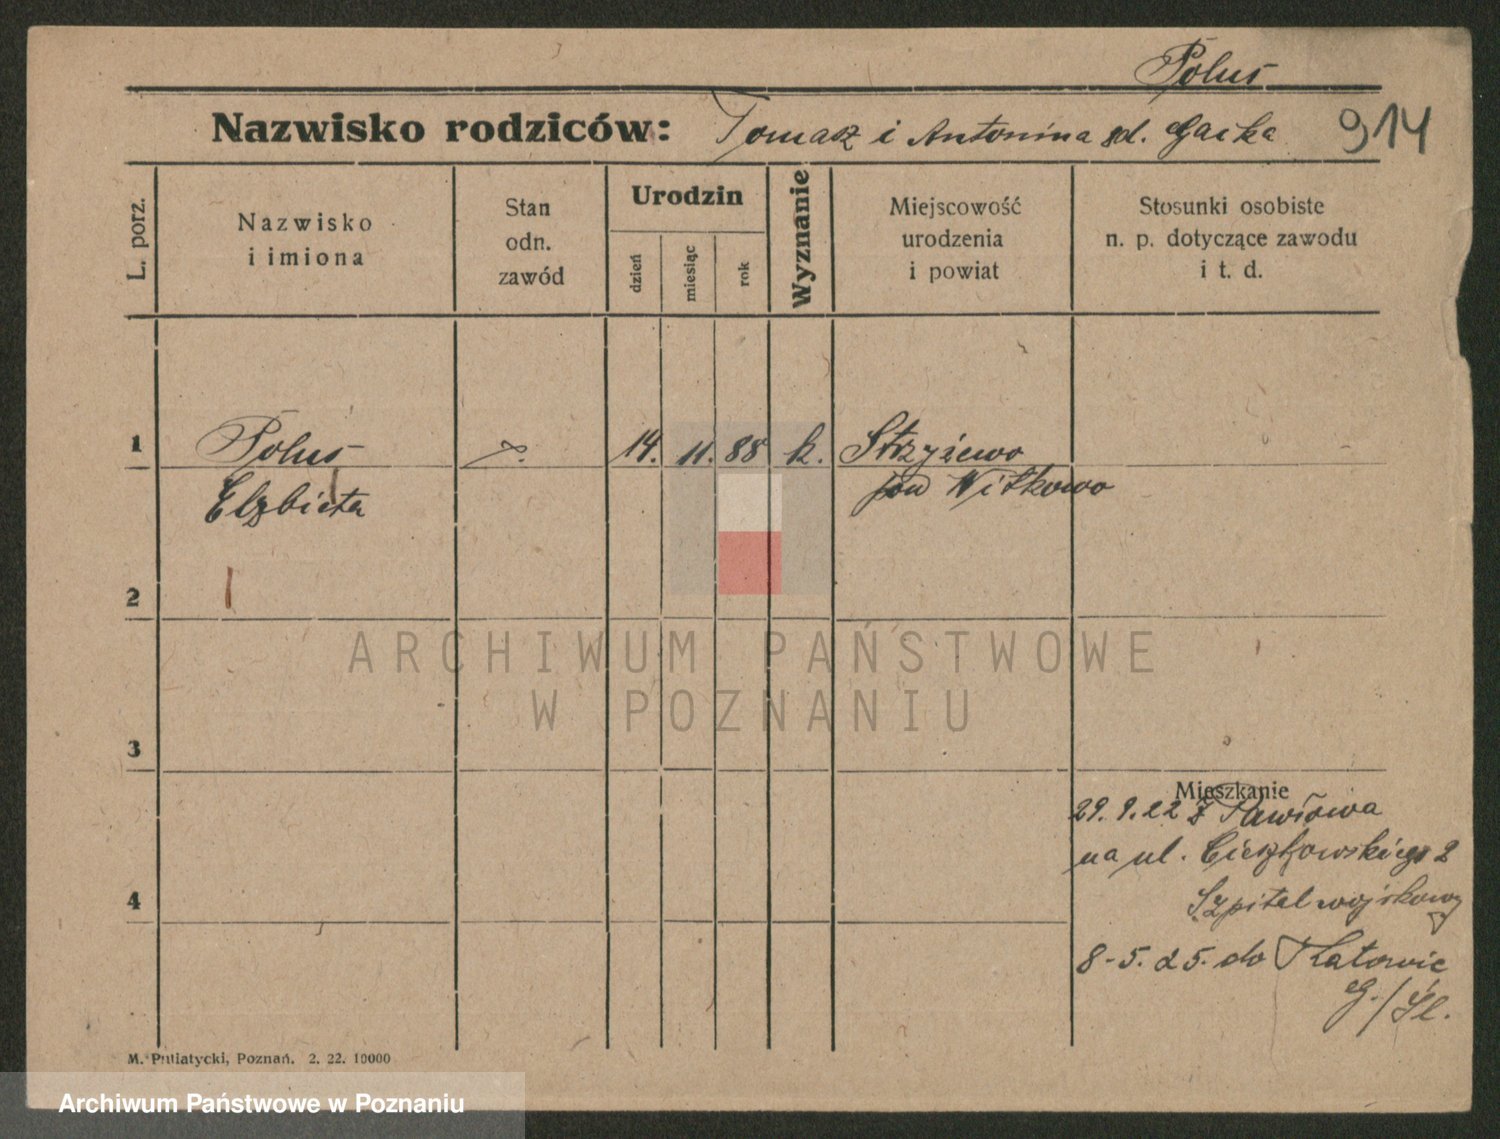 Polus
Nazwisko rodziców: Tomasz i Antonina zd. Gacka 914
L. porz.
Nazwisko
i imiona
Stan
odn.
zawód
Urodzin
dzień
miesiąc
rok
Wyznanie
Miejscowość
urodzenia
i powiat
Stosunki osobiste
n. p. dotyczące zawodu
i t. d.
1 Polus 14. 11. 88 k. Strzyżewo
Elzbieta pow Witkowo
2
ARCHIWUM PAŃSTWOWE
W POZNANIU
3
Mieszkanie
29. 9. 22 z Pawłowa
na ul. Cieszkowskiego 2
4
Szpital wojskowy
8-5. 25. do Katowic
G./Śl.
M. Putiatycki, Poznań. 2. 22. 10000
Archiwum Państwowe w Poznaniu